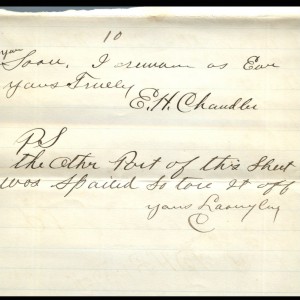 10
you
Soon. I remain as Ever
yours Truely
E. H. Chandler
PS
the other Part of this Sheet
was Spoiled so tore it off
yours